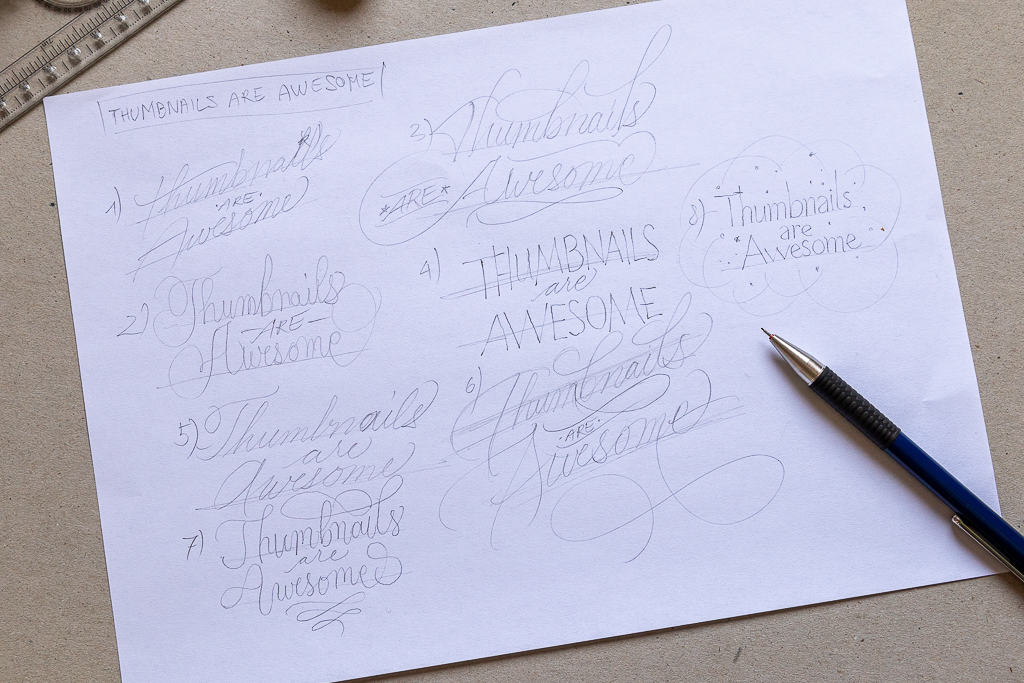 THUMBNAILS ARE AWESOME
1) Thumbnails
ARE
Awesome
2) Thumbnails
- ARE -
Awesome
3) Thumbnails
*ARE* Awesome
4) THUMBNAILS
are
AWESOME
5) Thumbnails
are
Awesome
6) Thumbnails
·ARE·
Awesome
7) Thumbnails
are
Awesome
8) Thumbnails
are
Awesome